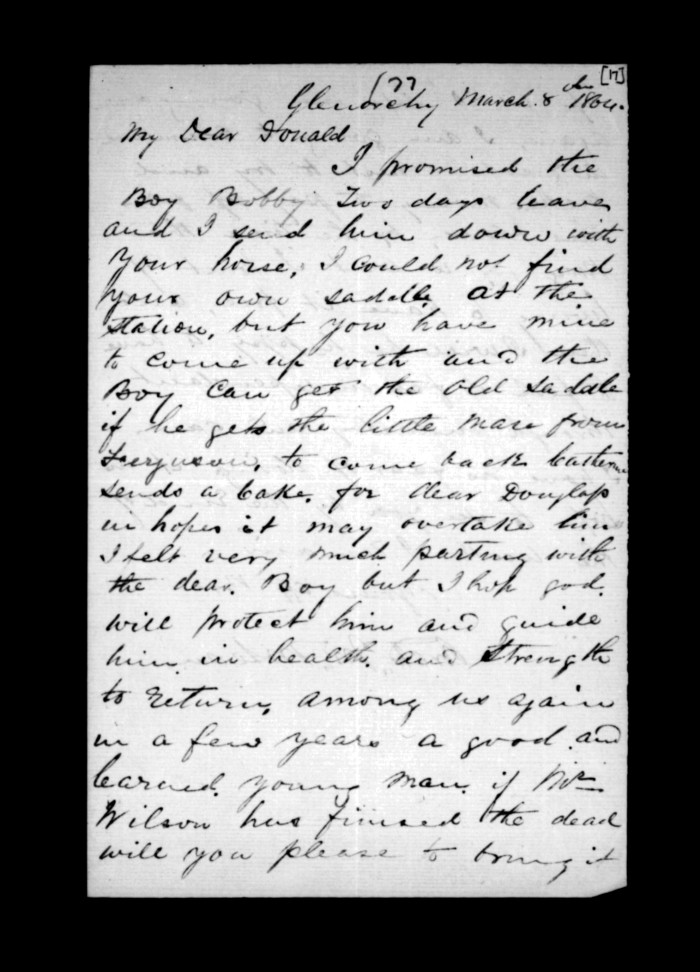 [17]
(77
Glenorchy March. 8th 1864.
My Dear Donald
I promised the
Boy Bobby Two days leave
and I send him down with
your horse, I could not find
your own saddle at the
station, but you have mine
to come up with and the
Boy can get the old saddle
if he gets the little mare from
Ferguson, to come back
sends a cake, for dear Douglass
in hopes it may overtake him
I felt very much parting with
the dear. Boy but I hop god.
will protect him and guide
him in health. and Strength
to return, among us again
in a few years a good and
learned. young man. if Mr
Wilson has finised the dead
will you please to bring it